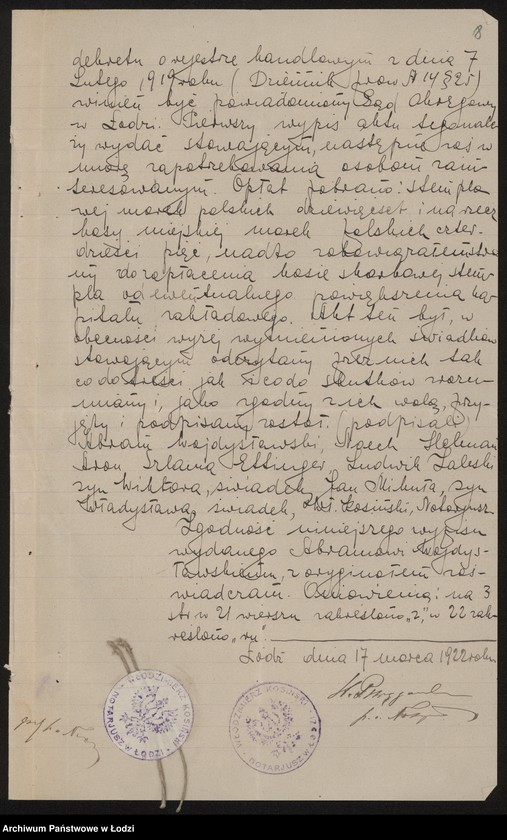 8
dekretu o rejestrze handlowym z dnia 7
Lutego 1919 roku (Dziennik Praw № 14 § 25)
winien być powiadomiony Sąd Okręgowy
w Łodzi. Pierwszy wypis aktu tego nale-
ży wydać stawającym, następne zaś w
miarę zapotrzebowania osobom zain-
teresowanym. Opłat pobrano: stemplo-
wej marek polskich dziewięćset i na rzecz
kasy miejskiej marek polskich czter-
dzieści pięć, nadto
do zapłacenia kasie skarbowej stem-
pla od ewentualnego powiększenia ka-
pitału zakładowego. Akt ten był, w
obecności wyżej wymienionych świadków
stawającym odczytany, przez nich tak
co do treści jak i co do skutków zrozu-
miany i, jako zgodny z ich wolą, przy-
jęty i podpisany został. (podpisali)
Abram Wojdysławski, Moech
Aron Szlama Ettinger, Ludwik Zaleski
syn Wiktora, świadek, Jan Mikuła, syn
Władysława, świadek, Wł. Kosiński, Notarjusz
Zgodność niniejszego wypisu
wydanego Abramowi Wojdys-
ławskiemu, z oryginałem zaś-
wiadczam. Omówienia: na 3
str w 21 wierszu zakreślono „z", w 22 zak-
reślono „ru".
Łódź dnia 17 marca 1922 roku
WŁODZIMIERZ KOSIŃSKI
NOTARJUSZ W ŁODZI
WŁODZIMIERZ KOSIŃSKI
NOTARJUSZ W ŁODZI
Archiwum Państwowe w Łodzi